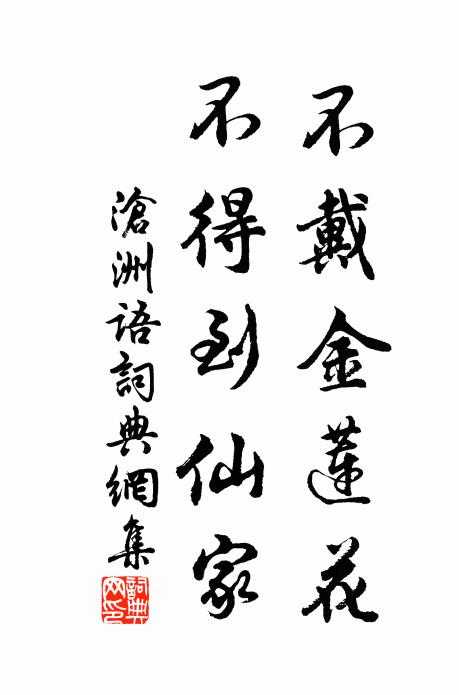 不戴金蓮花
不得到仙家
滄洲語詞典網集
詞典网印